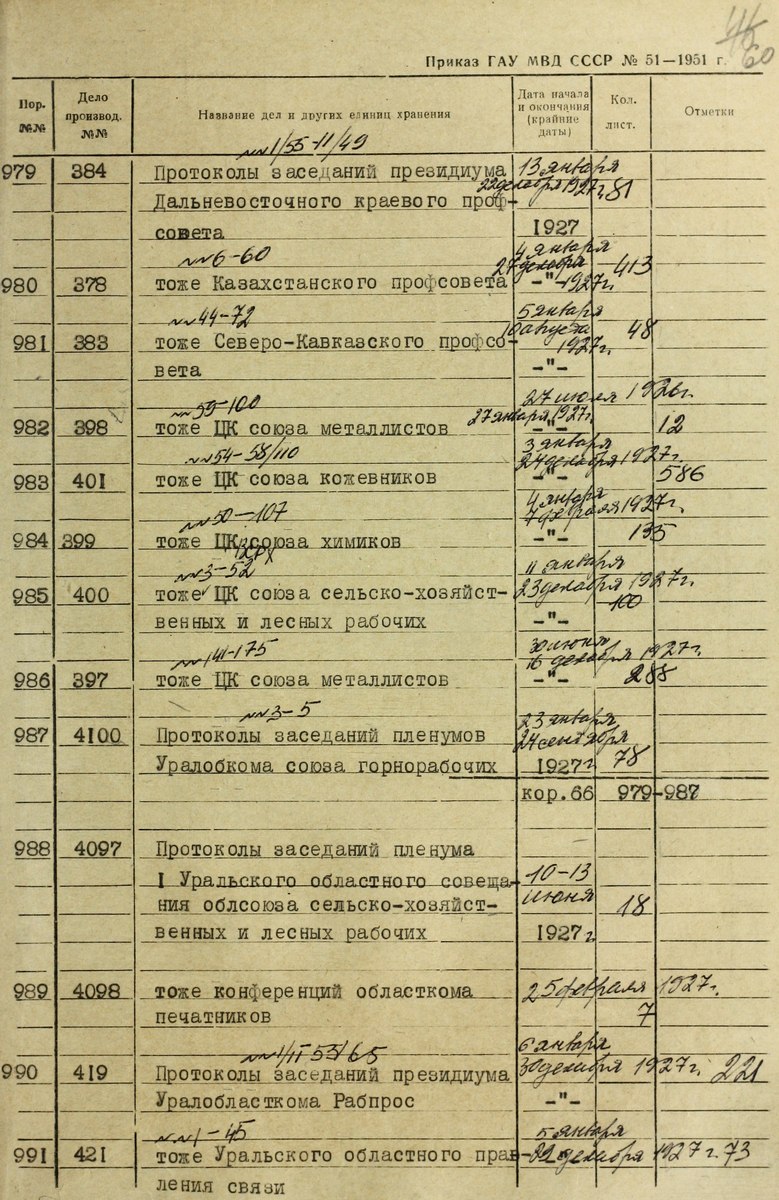 60
Приказ ГАУ МВД СССР № 51—1951 г.
Пор. №№
Дело производ. №№
Название дел и других единиц хранения
Дата начала и окончания (крайние даты)
Кол. лист.
Отметки
№№ 1/55-11/49
13 января
979 384 Протоколы заседаний президиума
22 декабря 1927 г. 81
Дальневосточного краевого проф-
совета 1927
№№ 6-60 4 января
27 декабря 413
980 378 тоже Казахстанского профсовета -"- 1927 г.
№№ 44-72 5 января
10 августа 48
981 383 тоже Северо-Кавказского профсо- 1927 г.
вета -"-
27 июля 1926 г.
№№ 55-100 27 января 1927 г.
982 398 тоже ЦК союза металлистов -"- 12
3 января
№№ 54-58/110 24 декабря 1927 г.
983 401 тоже ЦК союза кожевников -"- 586
4 января
№№ 50-107 7 февраля 1927 г.
984 399 тоже ЦК союза химиков -"- 135
11 января
№№ 3-52
985 400 тоже ЦК союза сельско-хозяйст- 23 декабря 1927 г.
100
венных и лесных рабочих -"-
30 июня
№№ 141-175 16 декабря 1927 г.
986 397 тоже ЦК союза металлистов -"- 288
№№ 3-5 23 января
987 4100 Протоколы заседаний пленумов 24 сентября
Уралобкома союза горнорабочих 1927 г. 78
кор.66 979-987
988 4097 Протоколы заседаний пленума
I Уральского областного совеща- 10-13
ния облсоюза сельско-хозяйст- июня 18
венных и лесных рабочих 1927 г.
989 4098 тоже конференций областкома 25 февраля 1927 г.
печатников 7
6 января
№№ 1/II 53/65
990 419 Протоколы заседаний президиума 30 декабря 1927 г. 221
Уралобласткома Рабпрос -"-
№№ 1-45 5 января
991 421 тоже Уральского областного прав- декабря 1927 г. 73
ления связи